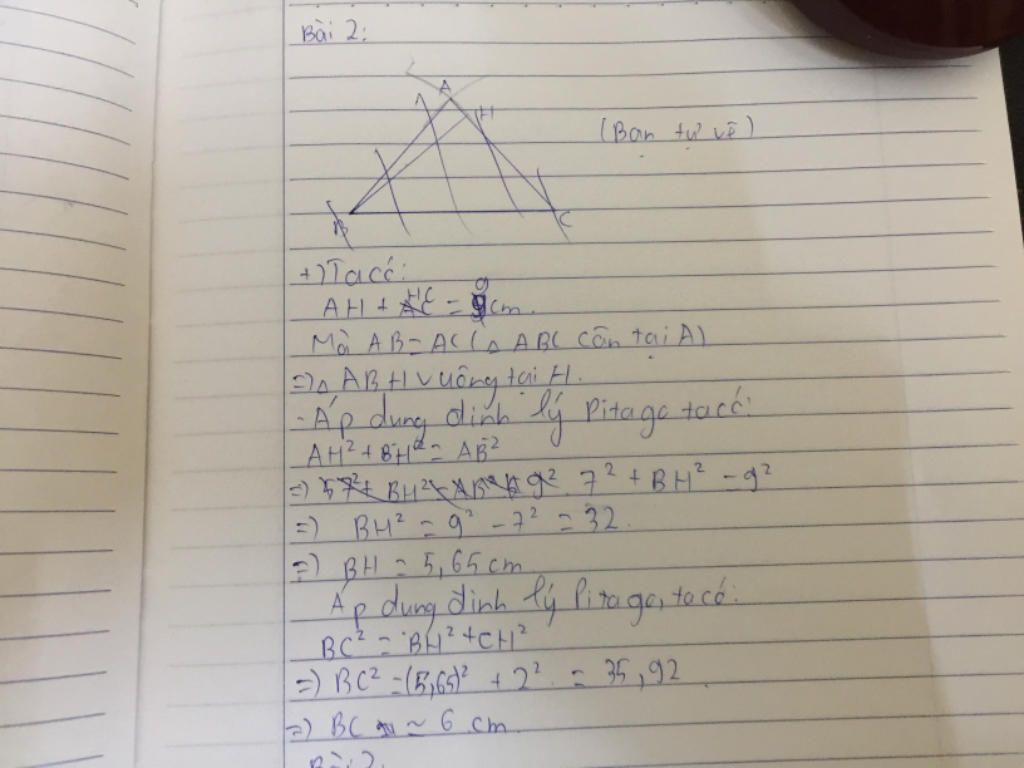 Bài 2:
A
H
(Bạn tự vẽ)
B
C
+) Ta có:
AH + HC = 9 cm.
Mà AB = AC (△ ABC cân tại A)
=> △ ABH vuông tại H.
- Áp dụng định lý Pitago ta có:
AH² + BH² = AB²
=> 7² + BH² = 9²
=> BH² = 9² - 7² = 32.
=> BH = 5,65 cm
Áp dụng định lý Pitago, ta có:
BC² = BH² + CH²
=> BC² = (5,65)² + 2² = 35,92
=> BC ≈ 6 cm.